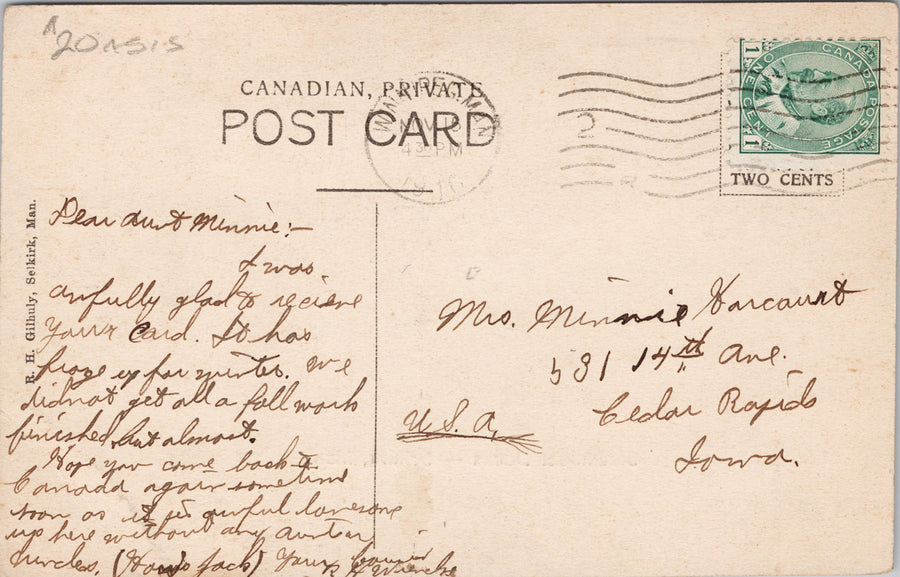 CANADIAN, PRIVATE
POST CARD
WINNIPEG, MAN
NOV
PM
CANADA POSTAGE
ONE CENT
1 1
TWO CENTS
R. H. Gilhuly, Selkirk, Man.
Dear Aunt Minnie:-
I was
awfully glad to recieve
Your Card. It has
froze up for winter. We
did not get all a fall work
finished, but almost.
Hope you come back to
Canada again sometime
soon as it is awful lonesome
up here without any aunts or
Uncles. (How's Jack) Your
Mrs. Minnie Harcourt
531 14th Ave.
Cedar Rapids
Iowa.
U.S.A.